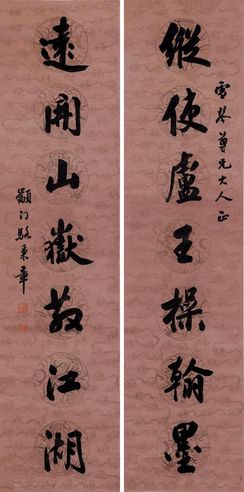 縱使盧王操翰墨
雪琴尊兄大人正
遠開山嶽散江湖
籲門駱秉章